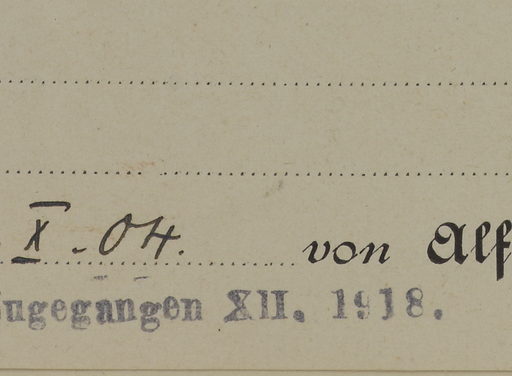 X. 04. von Alf
zugegangen XII. 1918.